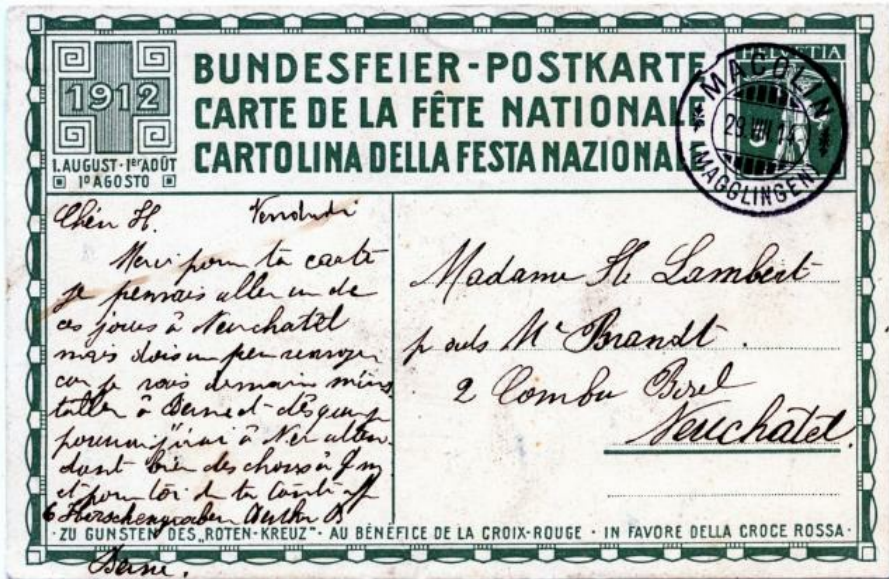 1912
1. AUGUST · 1er AOÛT
1º AGOSTO
BUNDESFEIER-POSTKARTE
CARTE DE LA FÊTE NATIONALE
CARTOLINA DELLA FESTA NAZIONALE
HELVETIA
MACOLIN
29.VIII.1
(MAGGLINGEN)
Chère H. Vendredi
Merci pour ta carte
je pensais aller un de
ces jours à Neuchatel
mais dois un peu renvoyer
car je vais demain m'ins
taller à Berne et dès que je
pourrai j'irai à Neu atten
dant bien des choses à
et pour toi de ta
6 Hirschengraben
Berne.
Madame H. Lambert
p ads Mr Brandt.
2 Combe Borel
Neuchâtel.
· ZU GUNSTEN DES „ROTEN-KREUZ" · AU BÉNÉFICE DE LA CROIX-ROUGE · IN FAVORE DELLA CROCE ROSSA ·